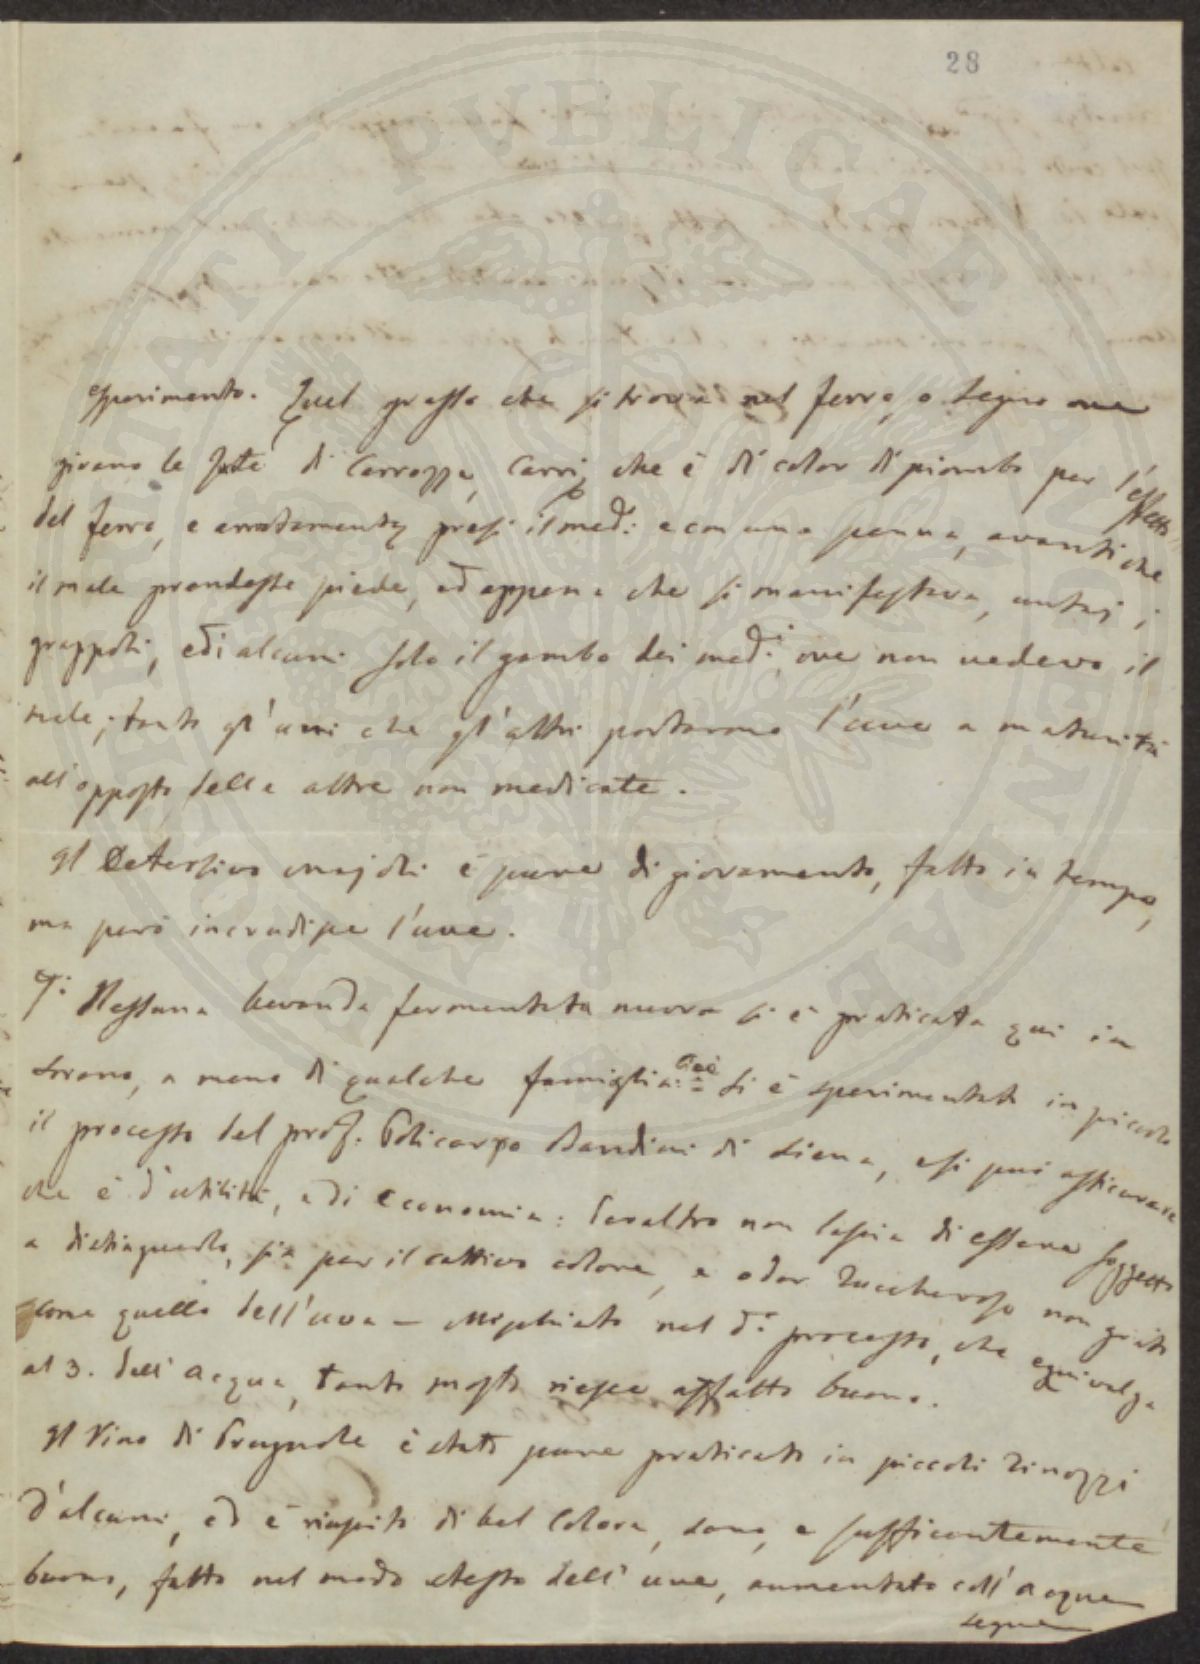 28
esperimento. Quel grasso che si trova nel ferro, o legno ove
girano le Rote di Carrozza, Carri, che è di color di piombo per l'effetto
del ferro, e presi il med:o e con una penna, avanti che
il male prendesse piede, ed appena che si manifestava, untai i
grappoli, e di alcuni solo il gambo dei med:i ove non vedevo il
male; tanto gl'uni che gl'altri portarono l'uve a maturità
all'opposto delle altre non medicate.
Il Detersivo è pure di giovamento, fatto in tempo,
ma però incrudisce l'uve.
Nessuna bevanda fermentata nuova si è praticata qui in
Sorano, a meno di qualche famiglia: cioè si è sperimentato in piccolo
il processo del prof. Policarpo Bandini di Siena, e si può assicurare
che è d'utilità, e di economia: Peraltro non lascia di essere soggetto
a distinguerlo, sia per il cattivo colore, e odor Zuccheroso non grato
come quello dell'uva — Mischiato nel d.o processo, che equivalga
al 3. dell'acqua, tanto mosto riesce affatto buono.
Il Vino di Prugnole è stato pure praticato in piccoli Tinozzi
d'alcuni, ed è riuscito di bel Colore, sano, e sufficientemente
buono, fatto nel modo stesso dell'uve, aumentato coll'acqua
segue